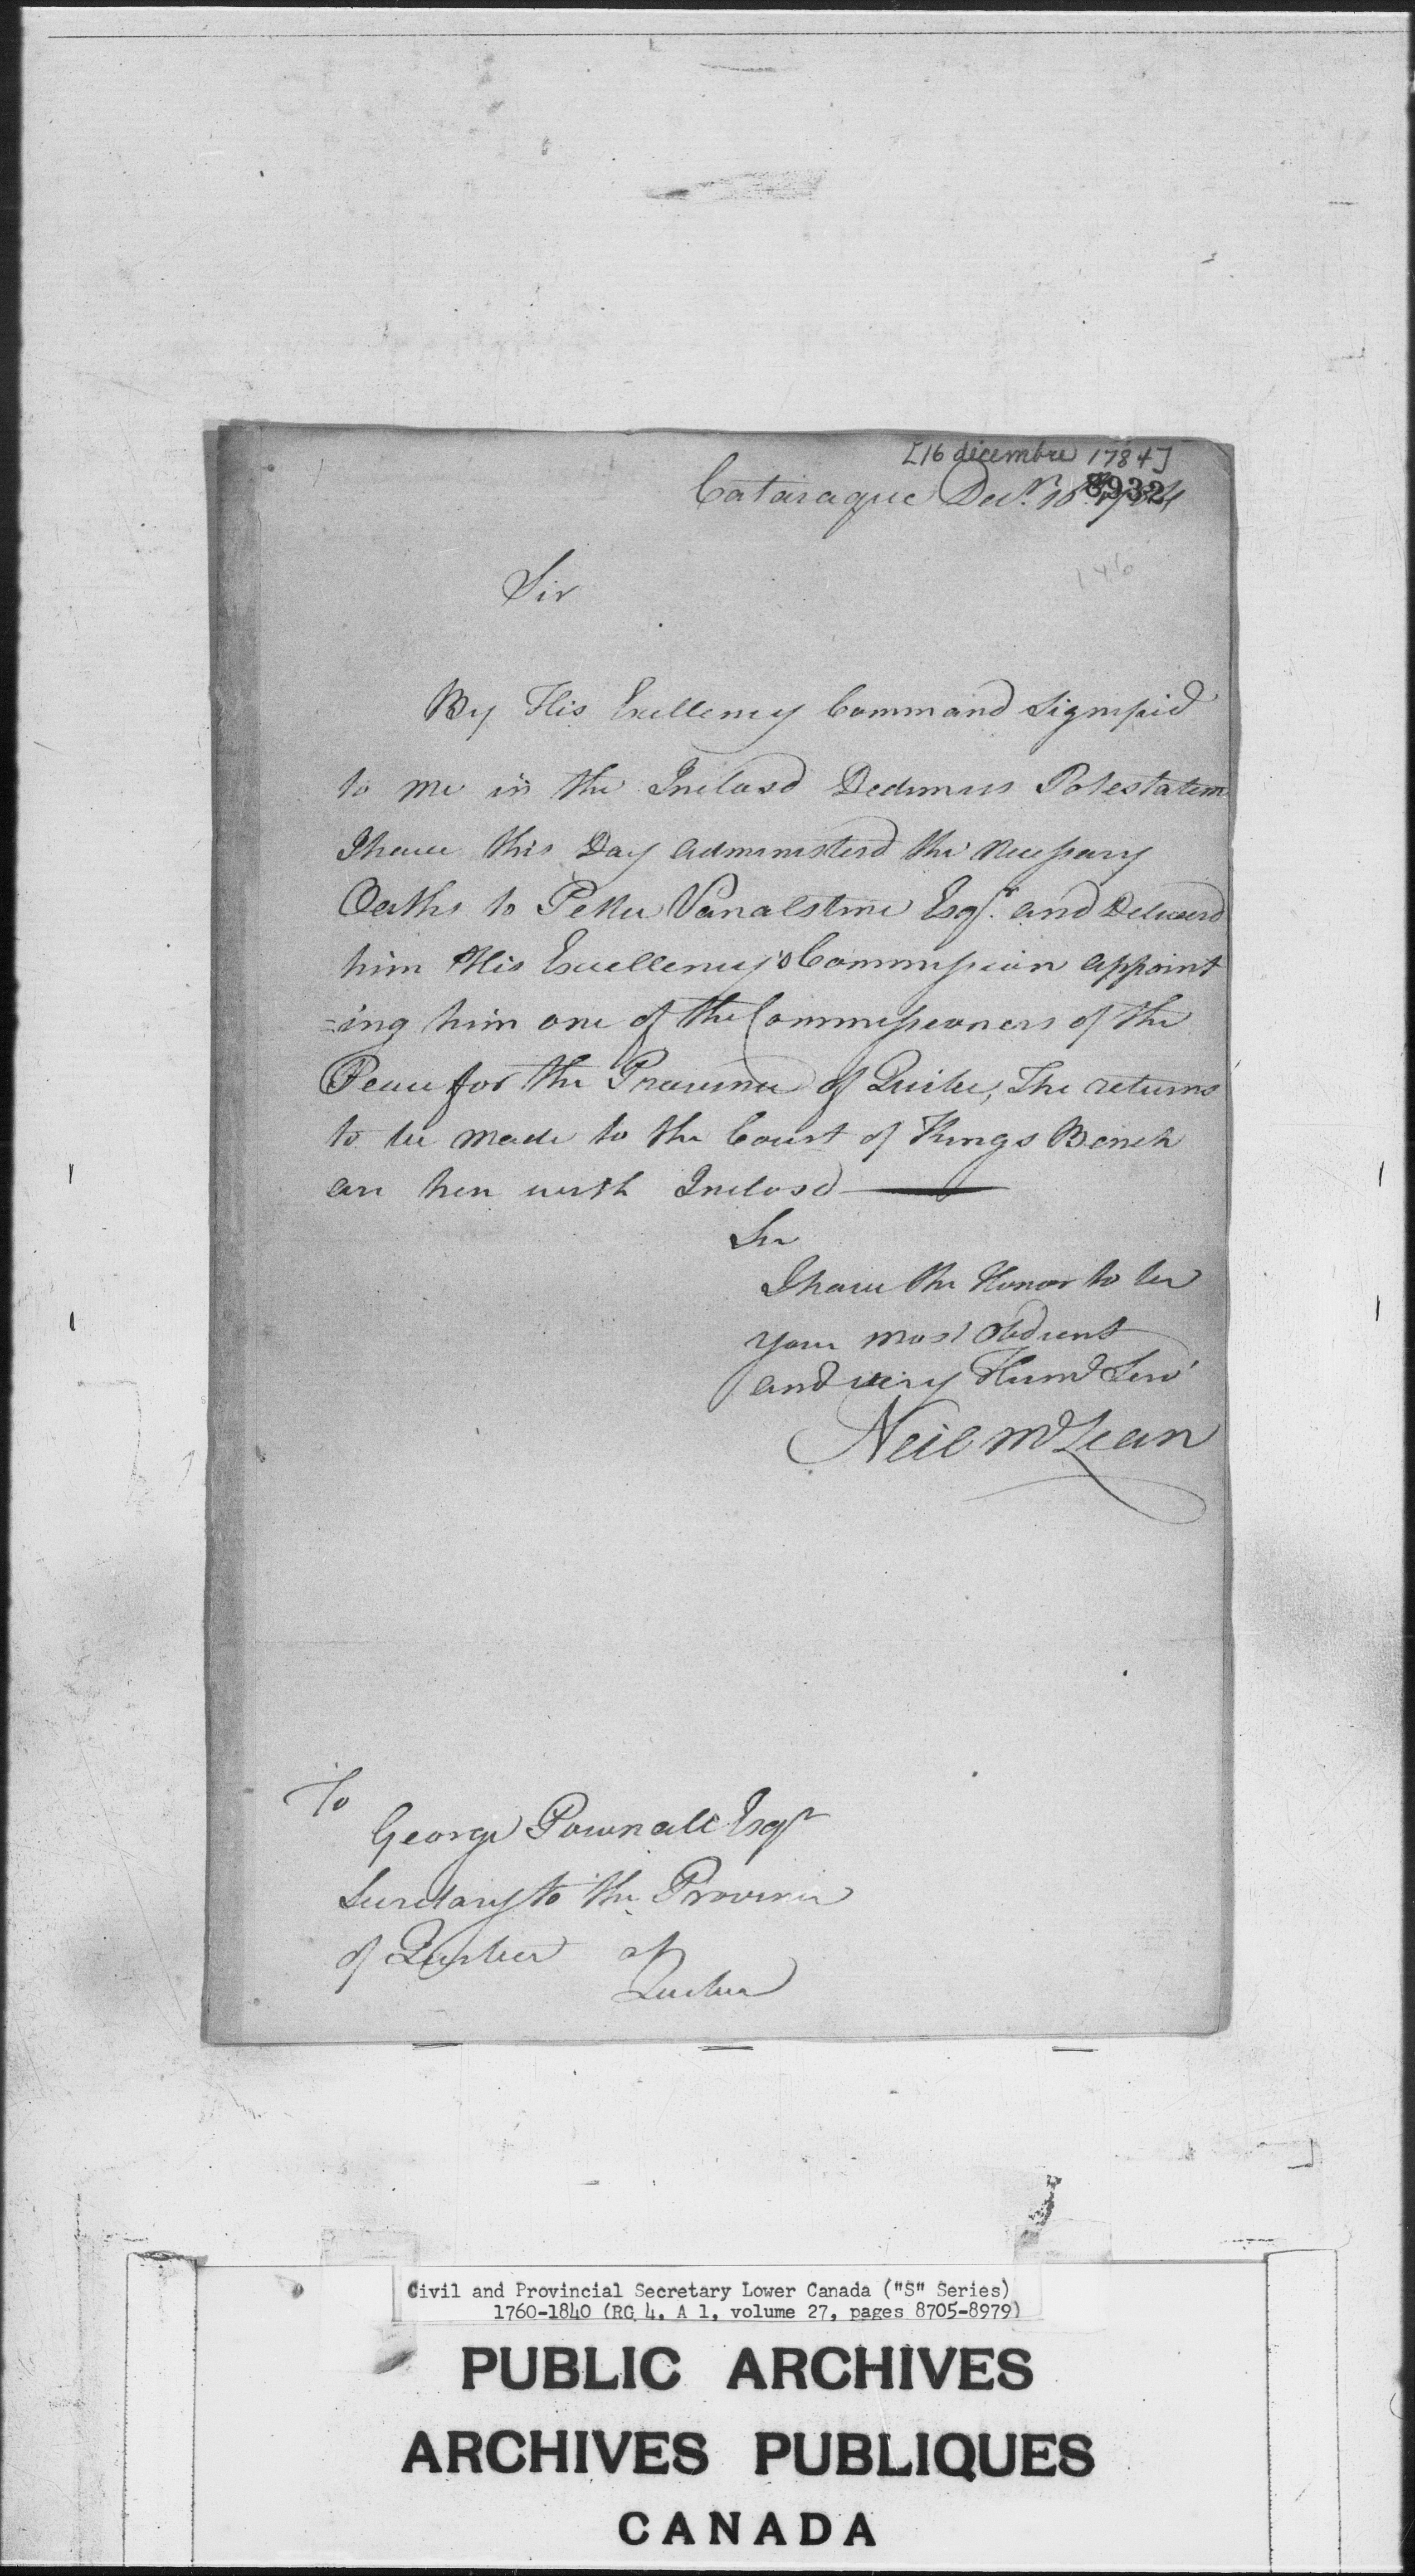 [16 décembre 1784]
Cataraque Decr. 16th 1784
8932
146
Sir
By His Exellency Command Signified
to me in the Inclosd Dedimus Potestatem
I have this Day administerd the necessary
Oaths to Peter Vanalstine Esqr. and Deliverd
him His Excellency's Commission appoint
=ing him one of the Commissioners of the
Peace for the Province of Quebec, The returns
to be made to the Court of Kings Bench
are here with Inclosd
Sir
I have the Honor to be
your most Obdient
and very Humd Serv
Neil McLean
To
George Pownall Esqr
Secretary to the Province
of Quebec at
Quebec
Civil and Provincial Secretary Lower Canada ("S" Series)
1760-1840 (RG 4, A 1, volume 27, pages 8705-8979)
PUBLIC ARCHIVES
ARCHIVES PUBLIQUES
CANADA